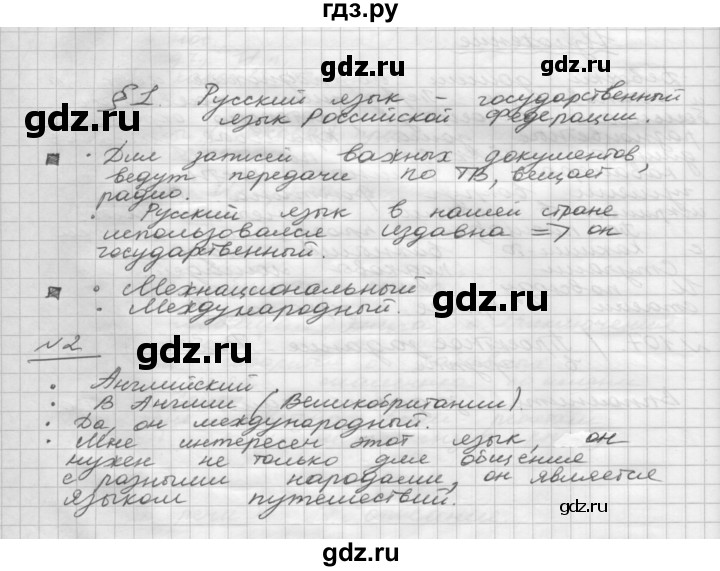 гдз.ру
gdz.ru
§1. Русский язык – государственный
язык Российской Федерации.
gdz.ru
• Для записей важных документов,
ведут передачи по ТВ, вещает
радио.
• Русский язык в нашей стране
использовался издавна => он
государственный.
gdz.ru
• Межнациональный
• Международный.
gdz.ru
№2
gdz.ru
• Английский
• В Англии (Великобритании).
• Да, он международный.
• Мне интересен этот язык, он
нужен не только для общения
с разными народами, он является
языком путешествий.
gdz.ru
gdz.ru
gdz.ru